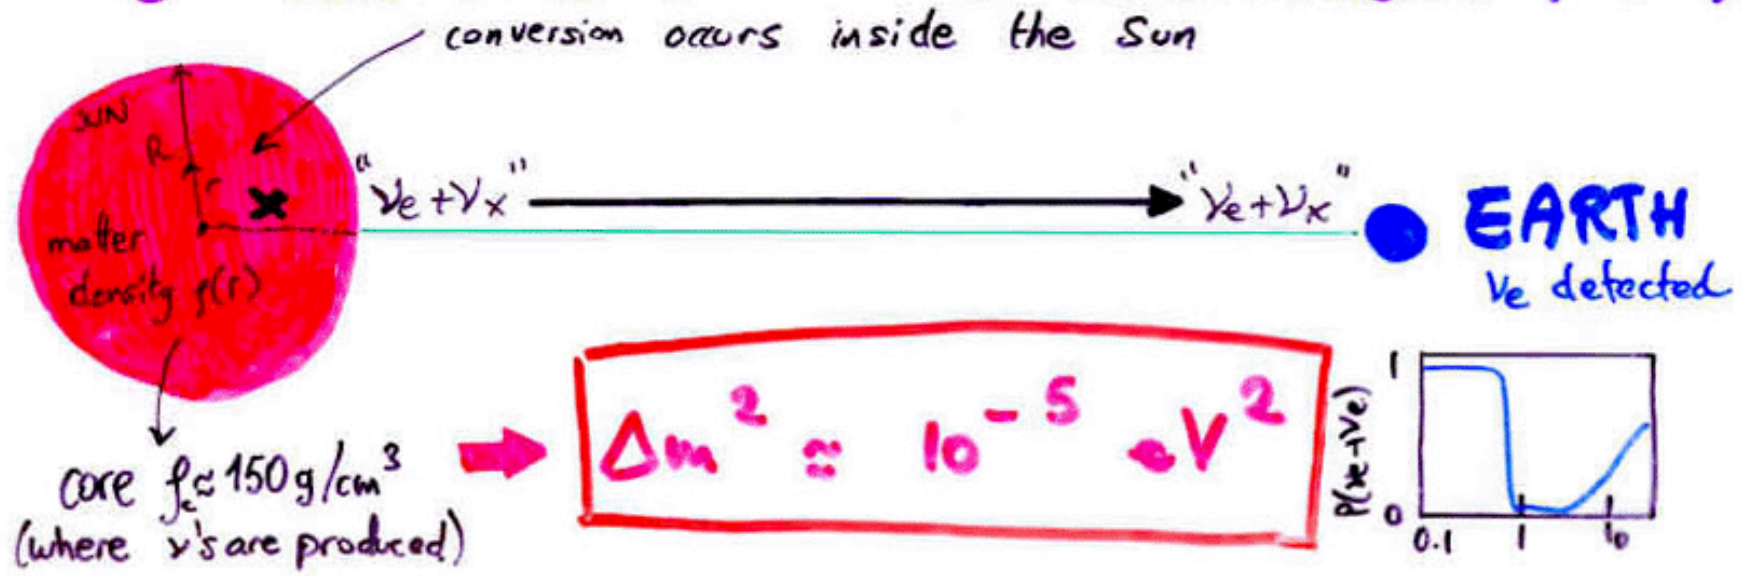 conversion occurs inside the Sun
SUN
R
r
matter
density ρ(r)
"νe+νx"
"νe+νx"
EARTH
νe detected
core ρc≈150g/cm³
(where ν's are produced)
Δm² ≃ 10⁻⁵ eV²
P(νe→νe)
1
0
0.1 1 10